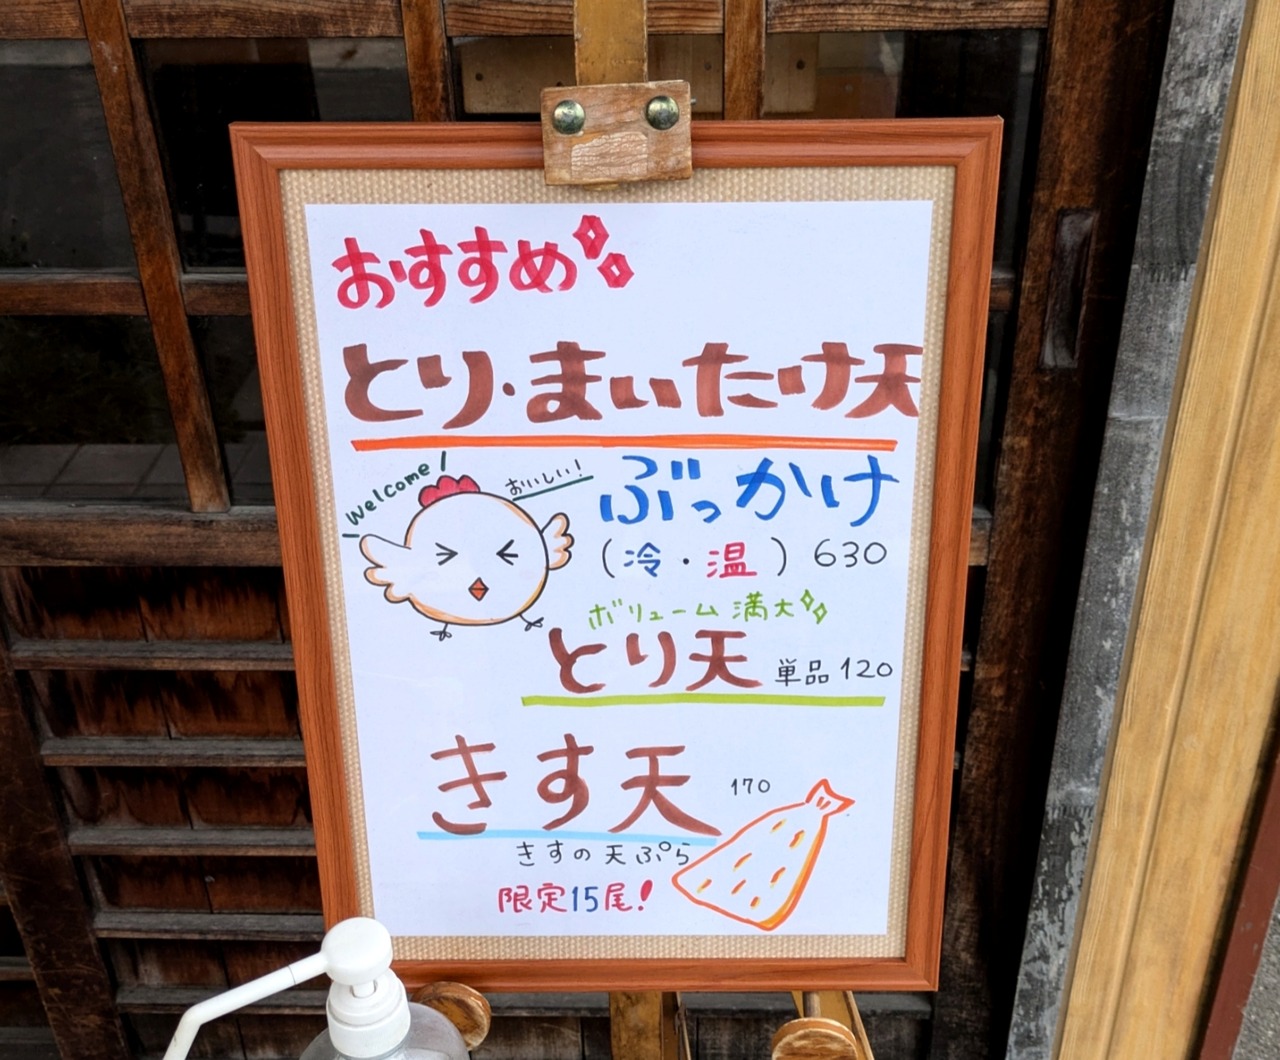 おすすめ
とり・まいたけ天
Welcome!
おいしい!
ぶっかけ
(冷・温) 630
ボリューム満大
とり天 単品120
きす天 170
きすの天ぷら
限定15尾!